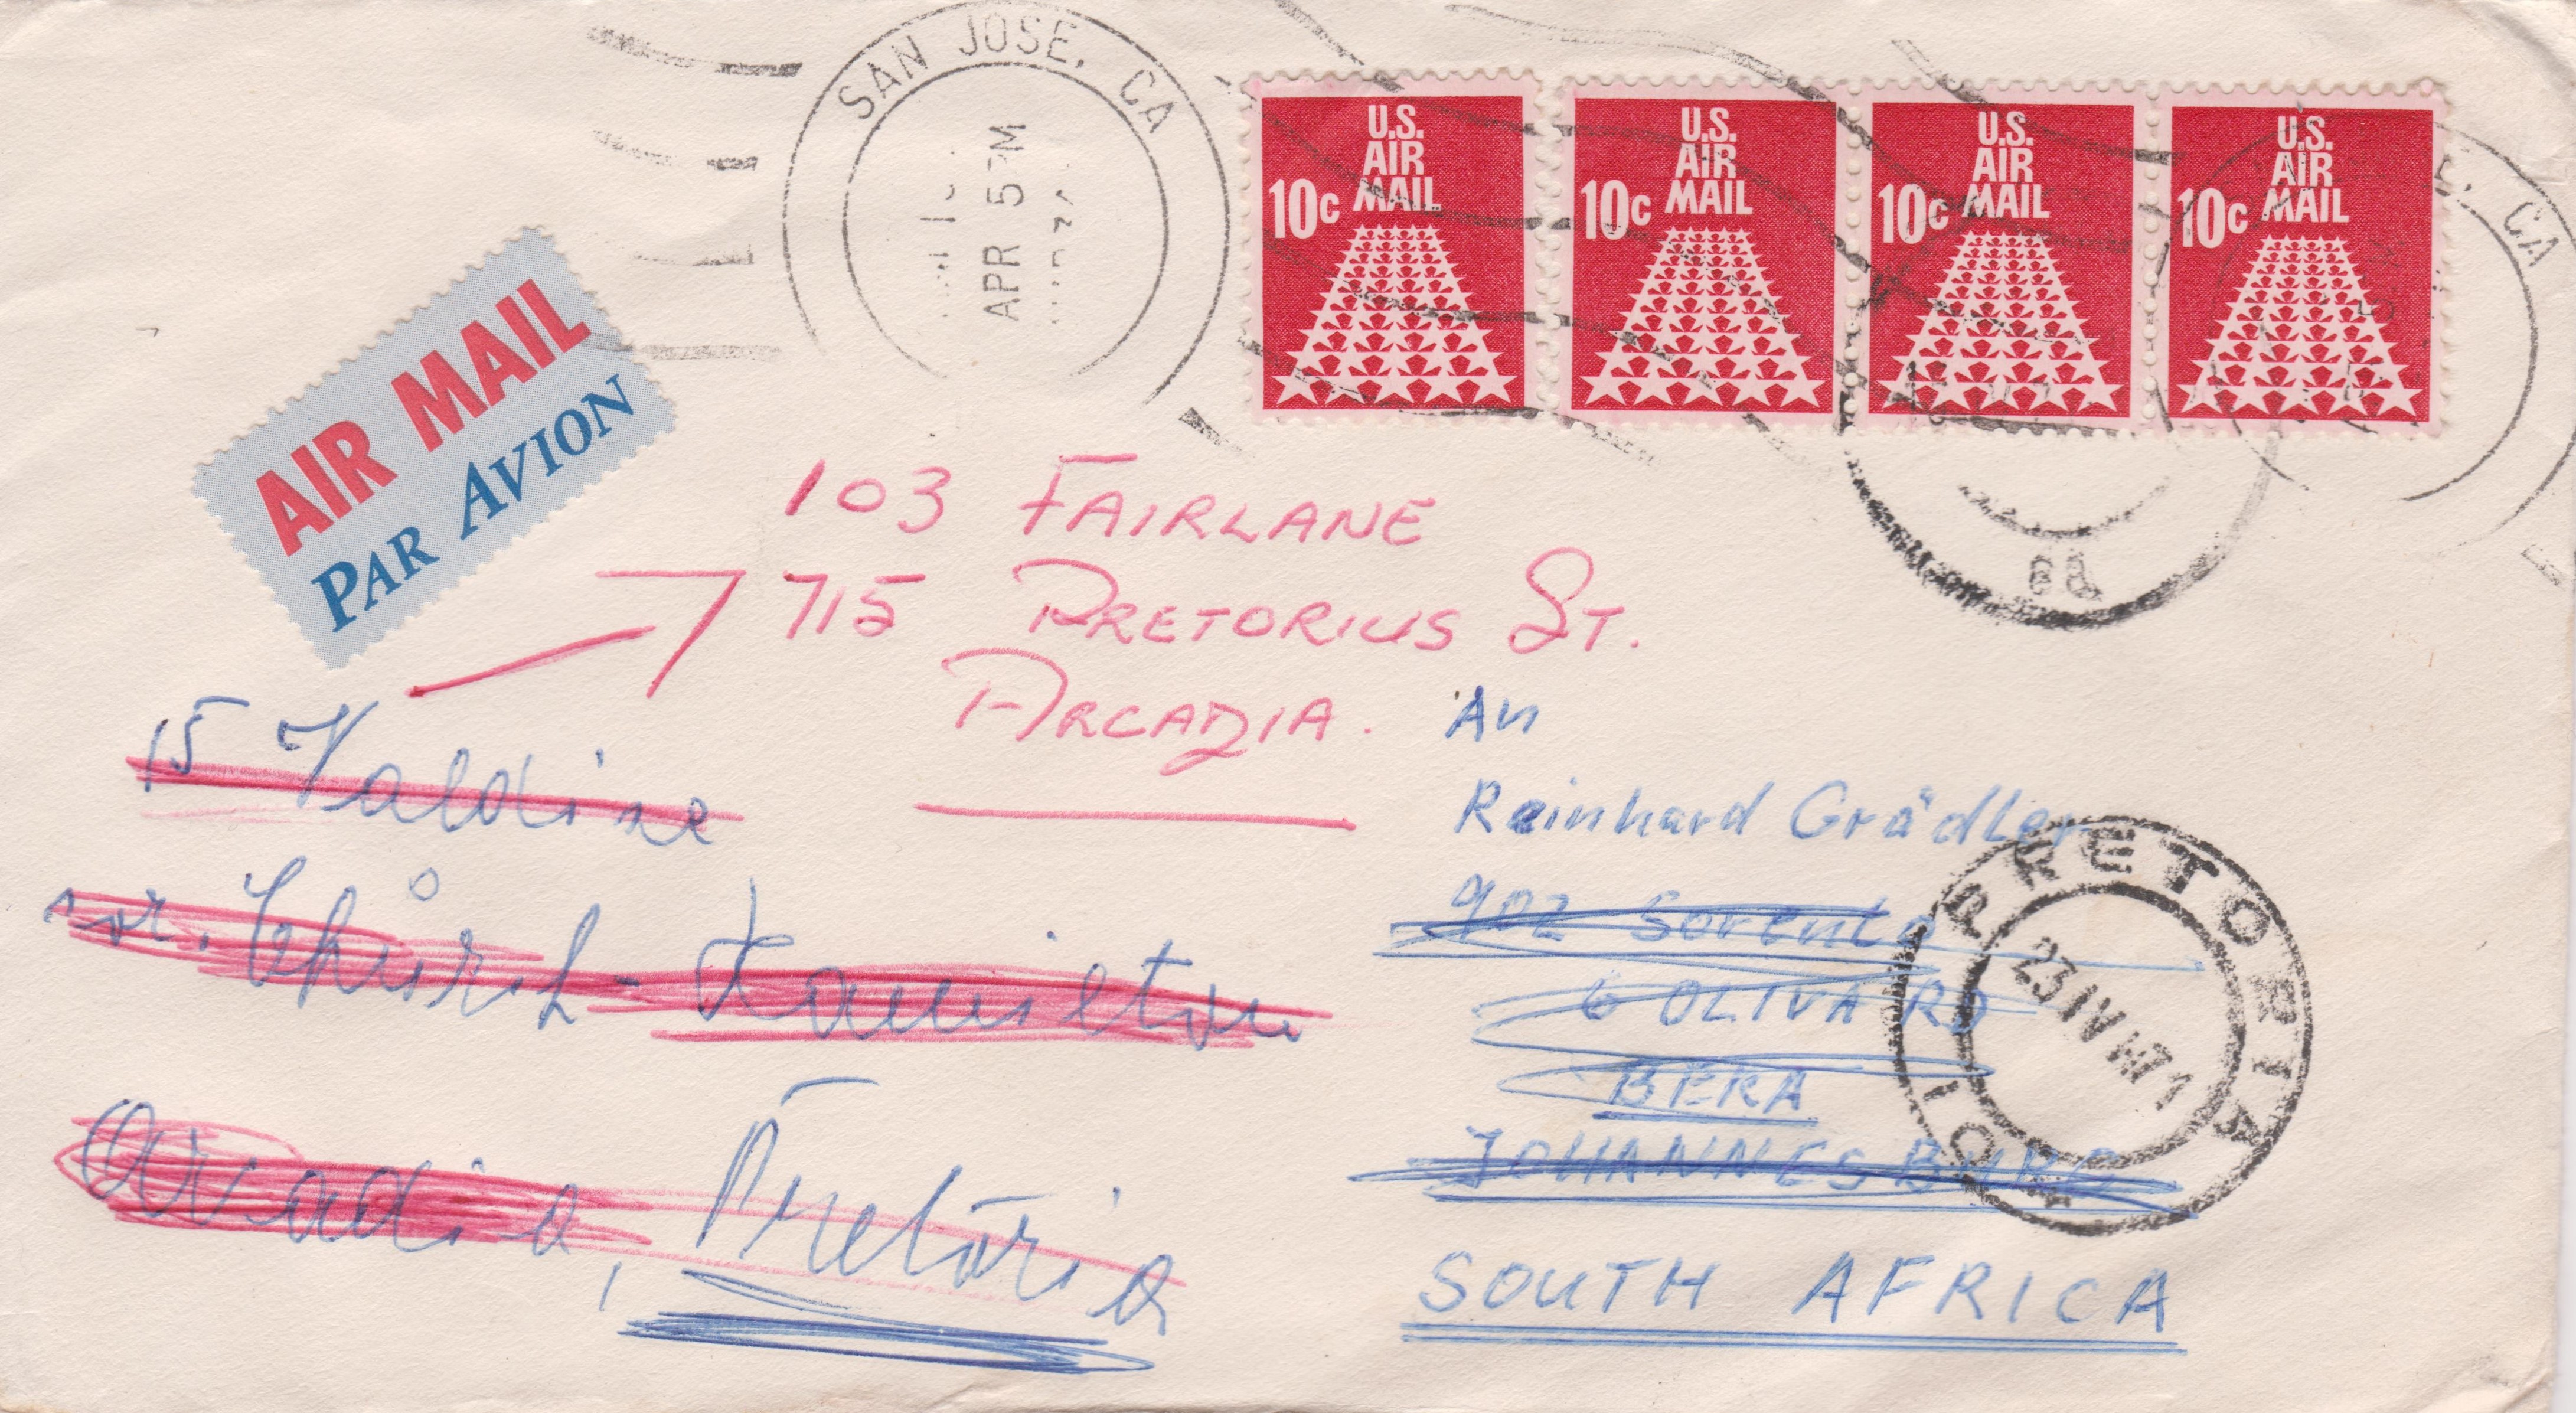 SAN JOSE, CA
APR 5 PM
U.S.
AIR
MAIL
10c
U.S.
AIR
MAIL
10c
U.S.
AIR
MAIL
10c
U.S.
AIR
MAIL
10c
CA
AIR MAIL
PAR AVION
103 FAIRLANE
715 PRETORIUS ST.
ARCADIA.
15 Valdine
cor. Church - Hamilton
Arcadia, Pretoria
An
Reinhard Grädler
902 Sorento
6 OLIVA RD
BEREA
JOHANNESBURG
SOUTH AFRICA
PRETORIA
23 IV 71